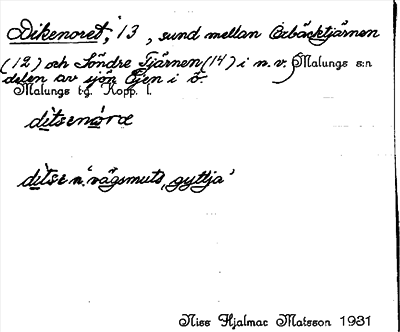 Dikenoret, 13, sund mellan Örbäcktjärnen
(12) och Söndre Tjärnen (14) i n. v. Malungs s:n
delen av sjön Öjen i ö.
Malungs tg. Kopp. l.
ditsenøre
ditse n. 'vägsmuts, gyttja'
Niss Hjalmar Matsson 1931